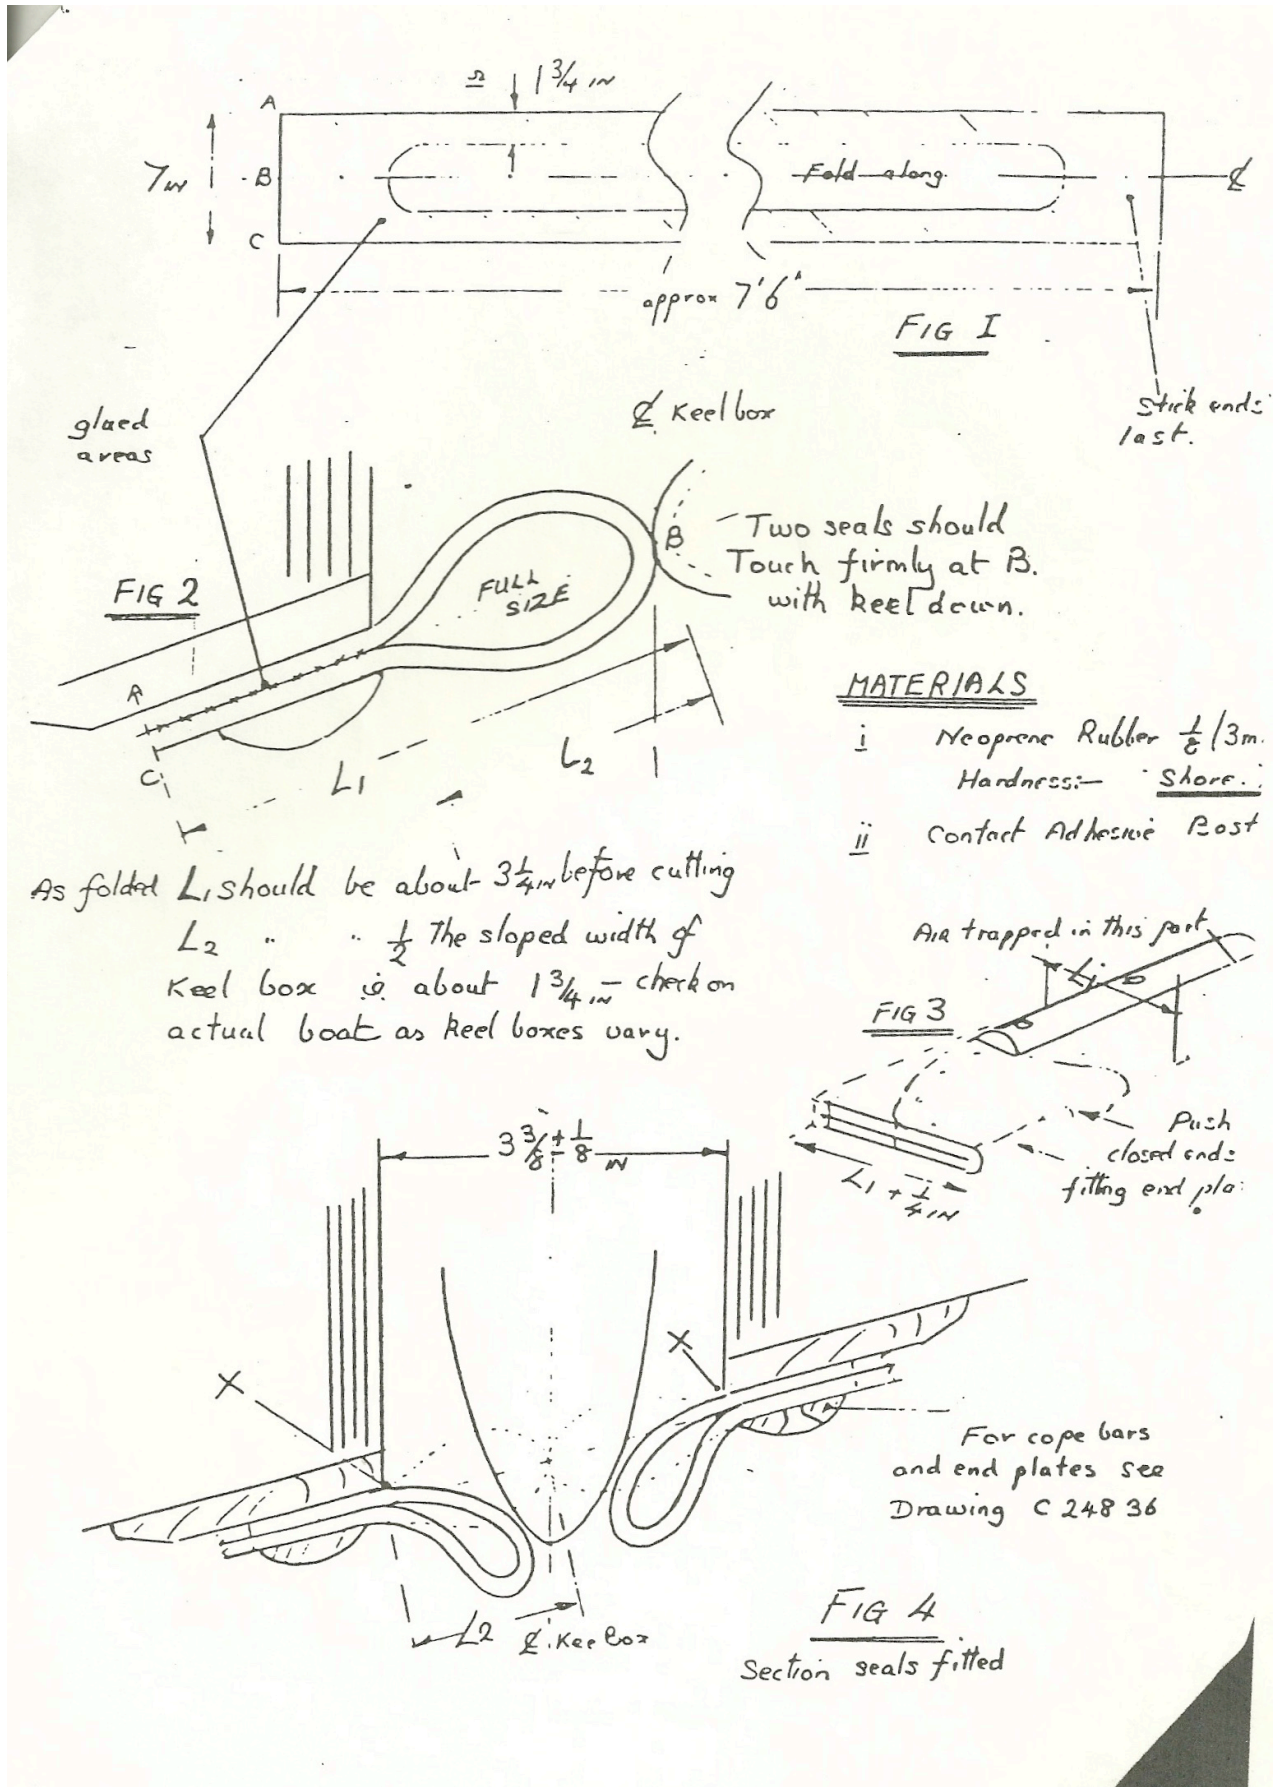 1 3/4 IN
A
7 IN
B
Fold along
℄
C
approx 7'6"
FIG I
glued
areas
stick ends
last.
℄ Keel box
B
Two seals should
Touch firmly at B.
with keel down.
FULL
SIZE
FIG 2
A
C
L1
L2
MATERIALS
i Neoprene Rubber 1/8 / 3m.
Hardness:- Shore.
ii Contact Adhesive Bost
As folded L1 should be about 3 1/4 IN before cutting
L2 " " 1/2 The sloped width of
Keel box ie about 1 3/4 IN - check on
actual boat as keel boxes vary.
Air trapped in this part
L1
B
B
FIG 3
Push
closed ends
fitting end pla
L1 + 1/4 IN
3 3/8 ± 1/8 IN
X
X
For cope bars
and end plates see
Drawing C 24836
L2
℄ Keel box
FIG 4
Section seals fitted